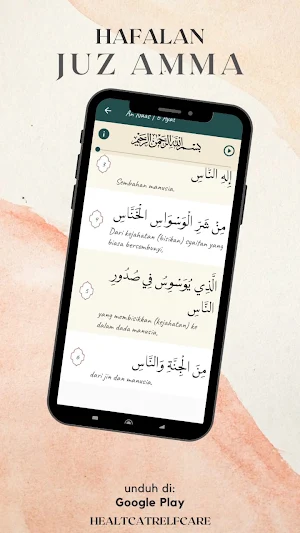 HAFALAN
JUZ AMMA
An Naas | 6 Ayat
بِسْمِ اللَّهِ الرَّحْمَٰنِ الرَّحِيمِ
إِلَٰهِ النَّاسِ
3
Sembahan manusia.
مِنْ شَرِّ الْوَسْوَاسِ الْخَنَّاسِ
4
Dari kejahatan (bisikan) syaitan yang
biasa bersembunyi,
الَّذِي يُوَسْوِسُ فِي صُدُورِ
النَّاسِ
5
yang membisikkan (kejahatan) ke
dalam dada manusia,
مِنَ الْجِنَّةِ وَالنَّاسِ
6
dari jin dan manusia.
unduh di:
Google Play
HEALTCATRELFCARE